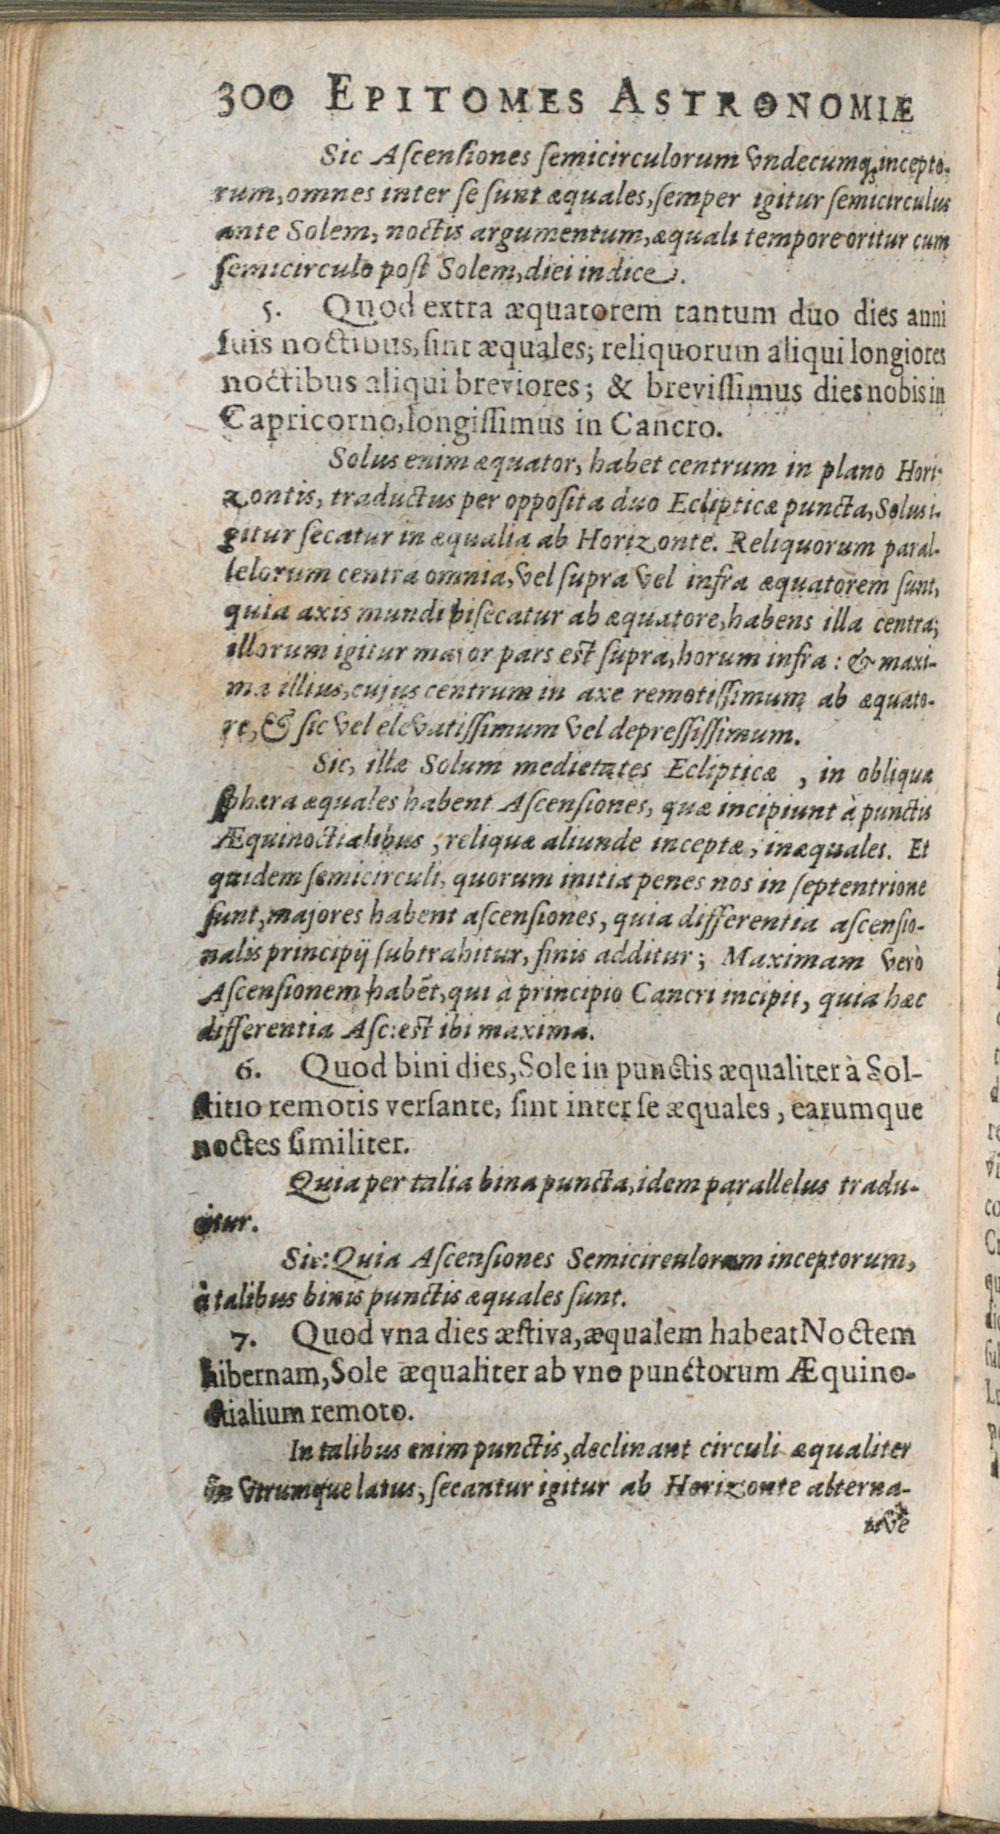 300 EPITOMES ASTRONOMIÆ
Sic Aſcenſiones ſemicirculorum vndecumq; incepto-
rum, omnes inter ſe ſunt æquales, ſemper igitur ſemicirculus
ante Solem, noctis argumentum, æquali tempore oritur cum
ſemicirculo poſt Solem, diei indice.
5. Quod extra æquatorem tantum duo dies anni
ſuis noctibus, ſint æquales; reliquorum aliqui longiores
noctibus aliqui breviores; & breviſſimus dies nobis in
Capricorno, longiſſimus in Cancro.
Solus enim æquator, habet centrum in plano Hori-
zontis, traductus per oppoſita duo Eclipticæ puncta, Solus i-
gitur ſecatur in æqualia ab Horizonte. Reliquorum paral-
lelorum centra omnia, vel ſupra vel infra æquatorem ſunt,
quia axis mundi biſecatur ab æquatore, habens illa centra;
illorum igitur maior pars eſt ſupra, horum infra: & maxi-
ma illius, cujus centrum in axe remotiſſimum ab æquato-
re, & ſic vel elevatiſſimum vel depreſſiſſimum.
Sic, illæ Solum medietates Eclipticæ, in obliqua
ſphæra æquales habent Aſcenſiones, quæ incipiunt à punctis
Æquinoctialibus; reliquæ aliunde inceptæ, inæquales. Et
quidem ſemicirculi, quorum initia penes nos in ſeptentrione
ſunt, majores habent aſcenſiones, quia differentia aſcenſio-
nalis principij ſubtrahitur, finis additur; Maximam verò
Aſcenſionem habẽt, qui à principio Cancri incipit, quia hæc
differentia Aſc: eſt ibi maxima.
6. Quod bini dies, Sole in punctis æqualiter à Sol-
ſtitio remotis verſante, ſint inter ſe æquales, earumque
noctes ſimiliter.
Quia per talia bina puncta, idem parallelus tradu-
citur.
Sic: Quia Aſcenſiones Semicirculorum inceptorum,
à talibus binis punctis æquales ſunt.
7. Quod vna dies æſtiva, æqualem habeat Noctem
hibernam, Sole æqualiter ab vno punctorum Æquino-
ctialium remoto.
In talibus enim punctis, declinant circuli æqualiter
in vtrumque latus, ſecantur igitur ab Horizonte alterna-
tive